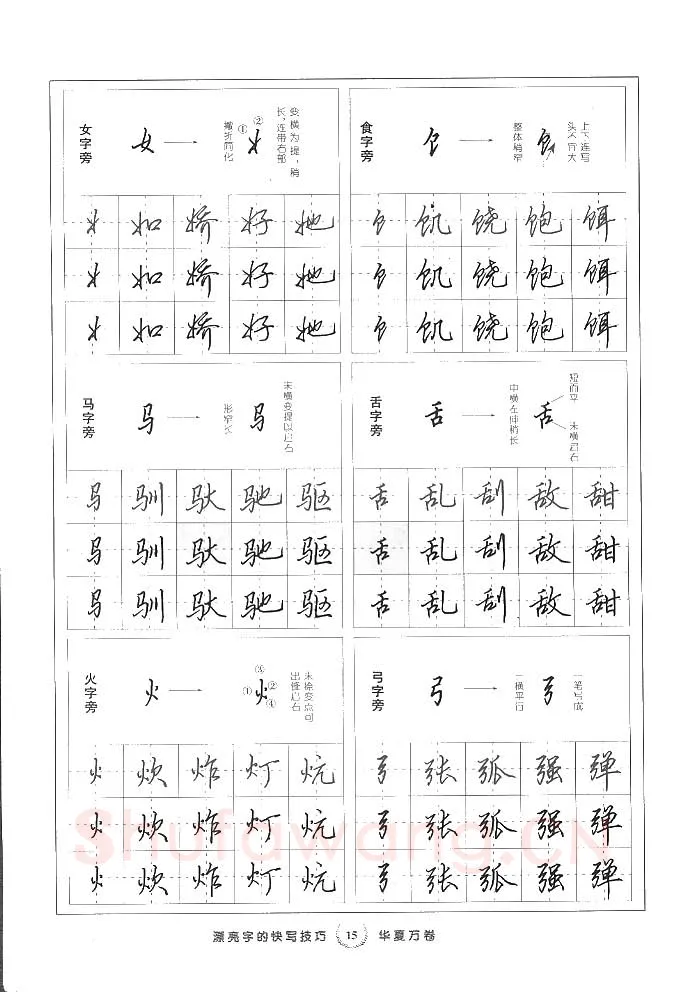 女字旁
女
撇折简化
①②
变横为提，稍长，连带右部
如 娇 好 她
如 娇 好 她
如 娇 好 她
食字旁
饣
整体稍窄
饣
上下连写
头不宜大
饣 饥 饶 饱 饵
饣 饥 饶 饱 饵
饣 饥 饶 饱 饵
马字旁
马
形窄长
马
末横变提以启右
马 驯 驮 驰 驱
马 驯 驮 驰 驱
马 驯 驮 驰 驱
舌字旁
舌
中横左伸稍长
舌
短而平
末横启右
舌 乱 刮 敌 甜
舌 乱 刮 敌 甜
舌 乱 刮 敌 甜
火字旁
火
①②③④
火
末捺变点可出锋启右
火 炊 炸 灯 炕
火 炊 炸 灯 炕
火 炊 炸 灯 炕
弓字旁
弓
二横平行
弓
一笔写成
弓 张 弧 强 弹
弓 张 弧 强 弹
弓 张 弧 强 弹
Shufawang.CN
漂亮字的快写技巧 15 华夏万卷